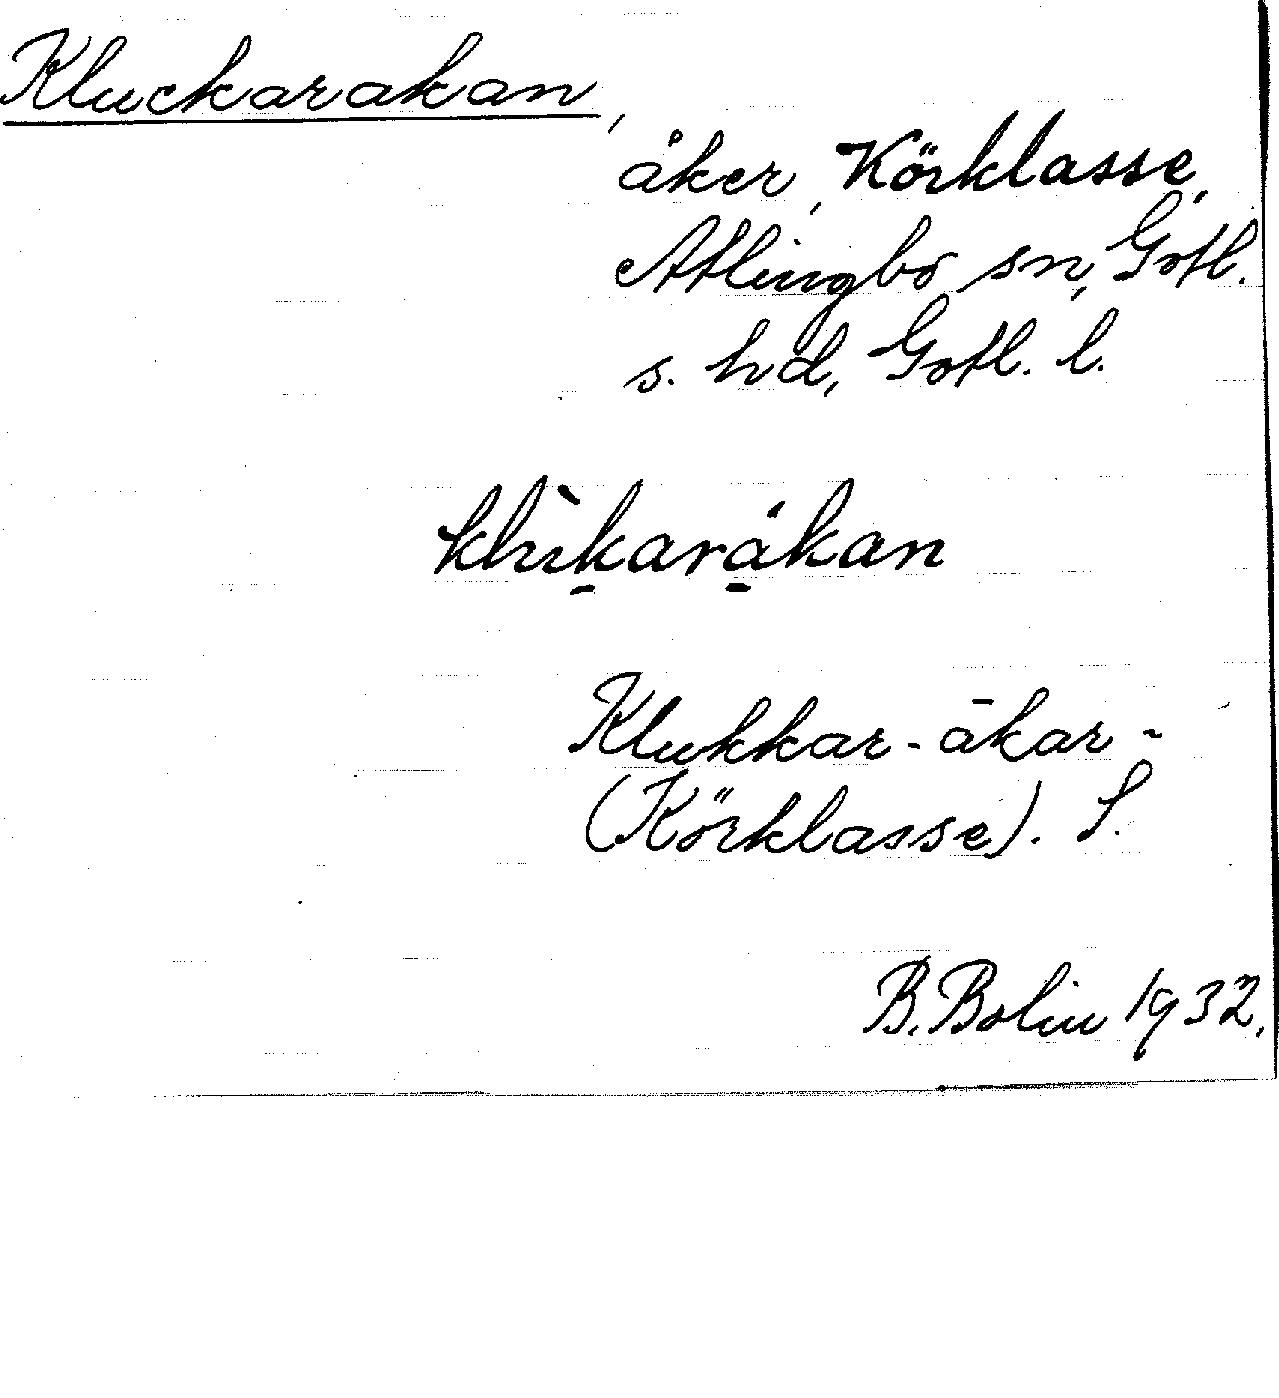 Kluckarakan,
åker, Körklasse,
Atlingbo sn, Gotl.
s. hd, Gotl. l.
klùk̠ará̠kan
Klukkar-ākar-
(Körklasse). S.
B. Bolin 1932.